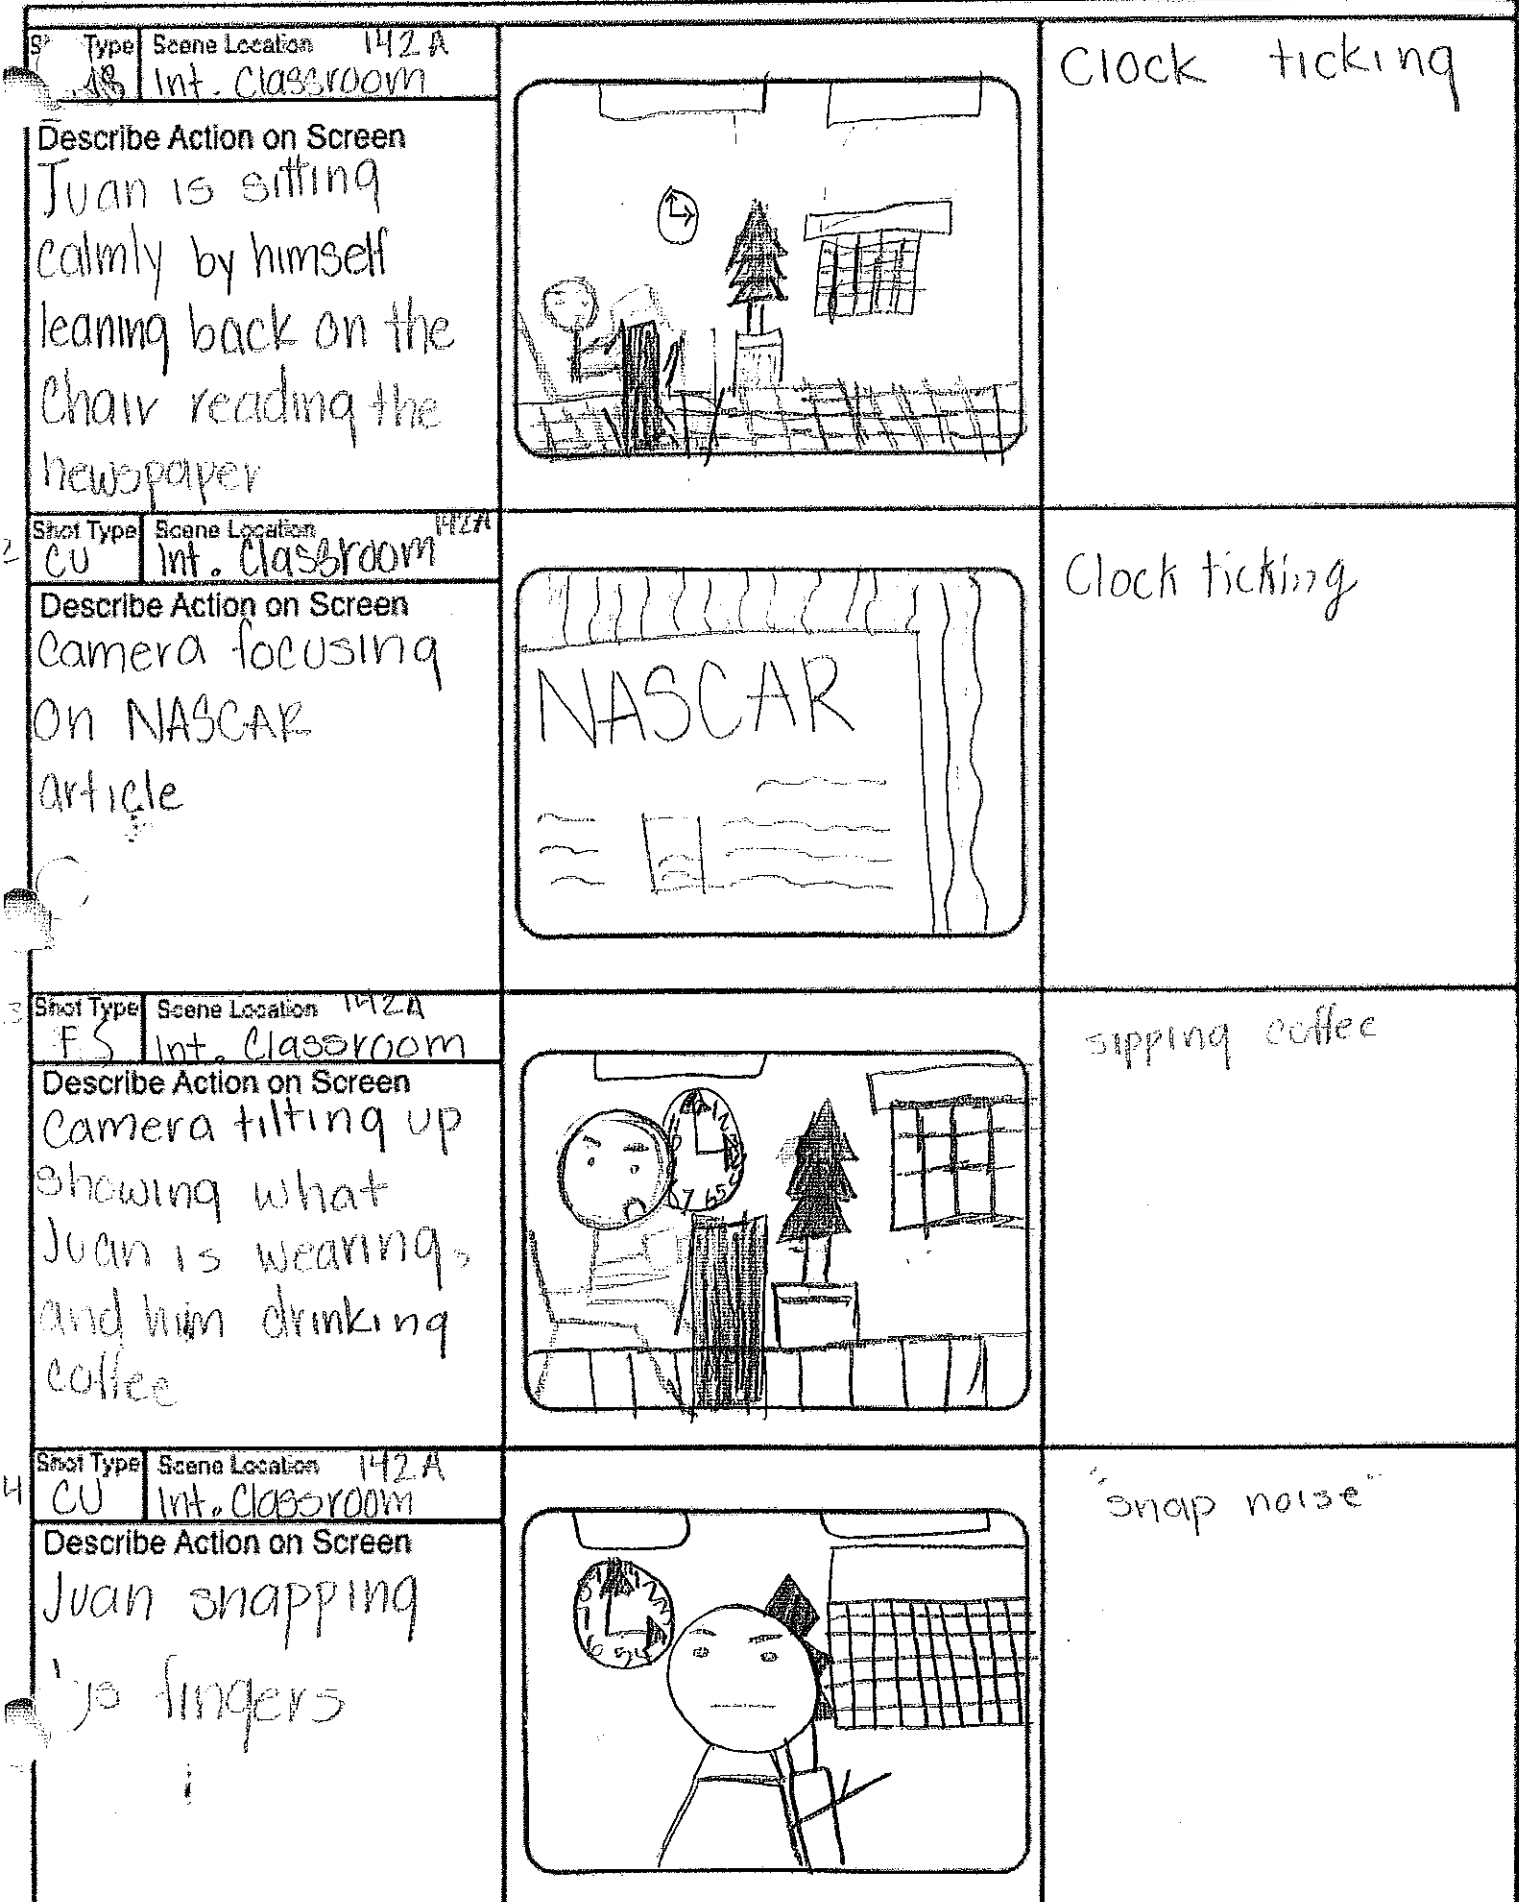 Type Scene Location 142A
Int. Classroom
Describe Action on Screen
Juan is sitting
calmly by himself
leaning back on the
Chair reading the
newspaper
Clock ticking
2
Shot Type Scene Location 142A
CU Int. Classroom
Describe Action on Screen
Camera focusing
on NASCAR
article
NASCAR
Clock ticking
3
Shot Type Scene Location 142A
FS Int. Classroom
Describe Action on Screen
Camera tilting up
showing what
Juan is wearing,
and him drinking
coffee
sipping coffee
4
Shot Type Scene Location 142A
CU Int. Classroom
Describe Action on Screen
Juan snapping
fingers
"snap noise"